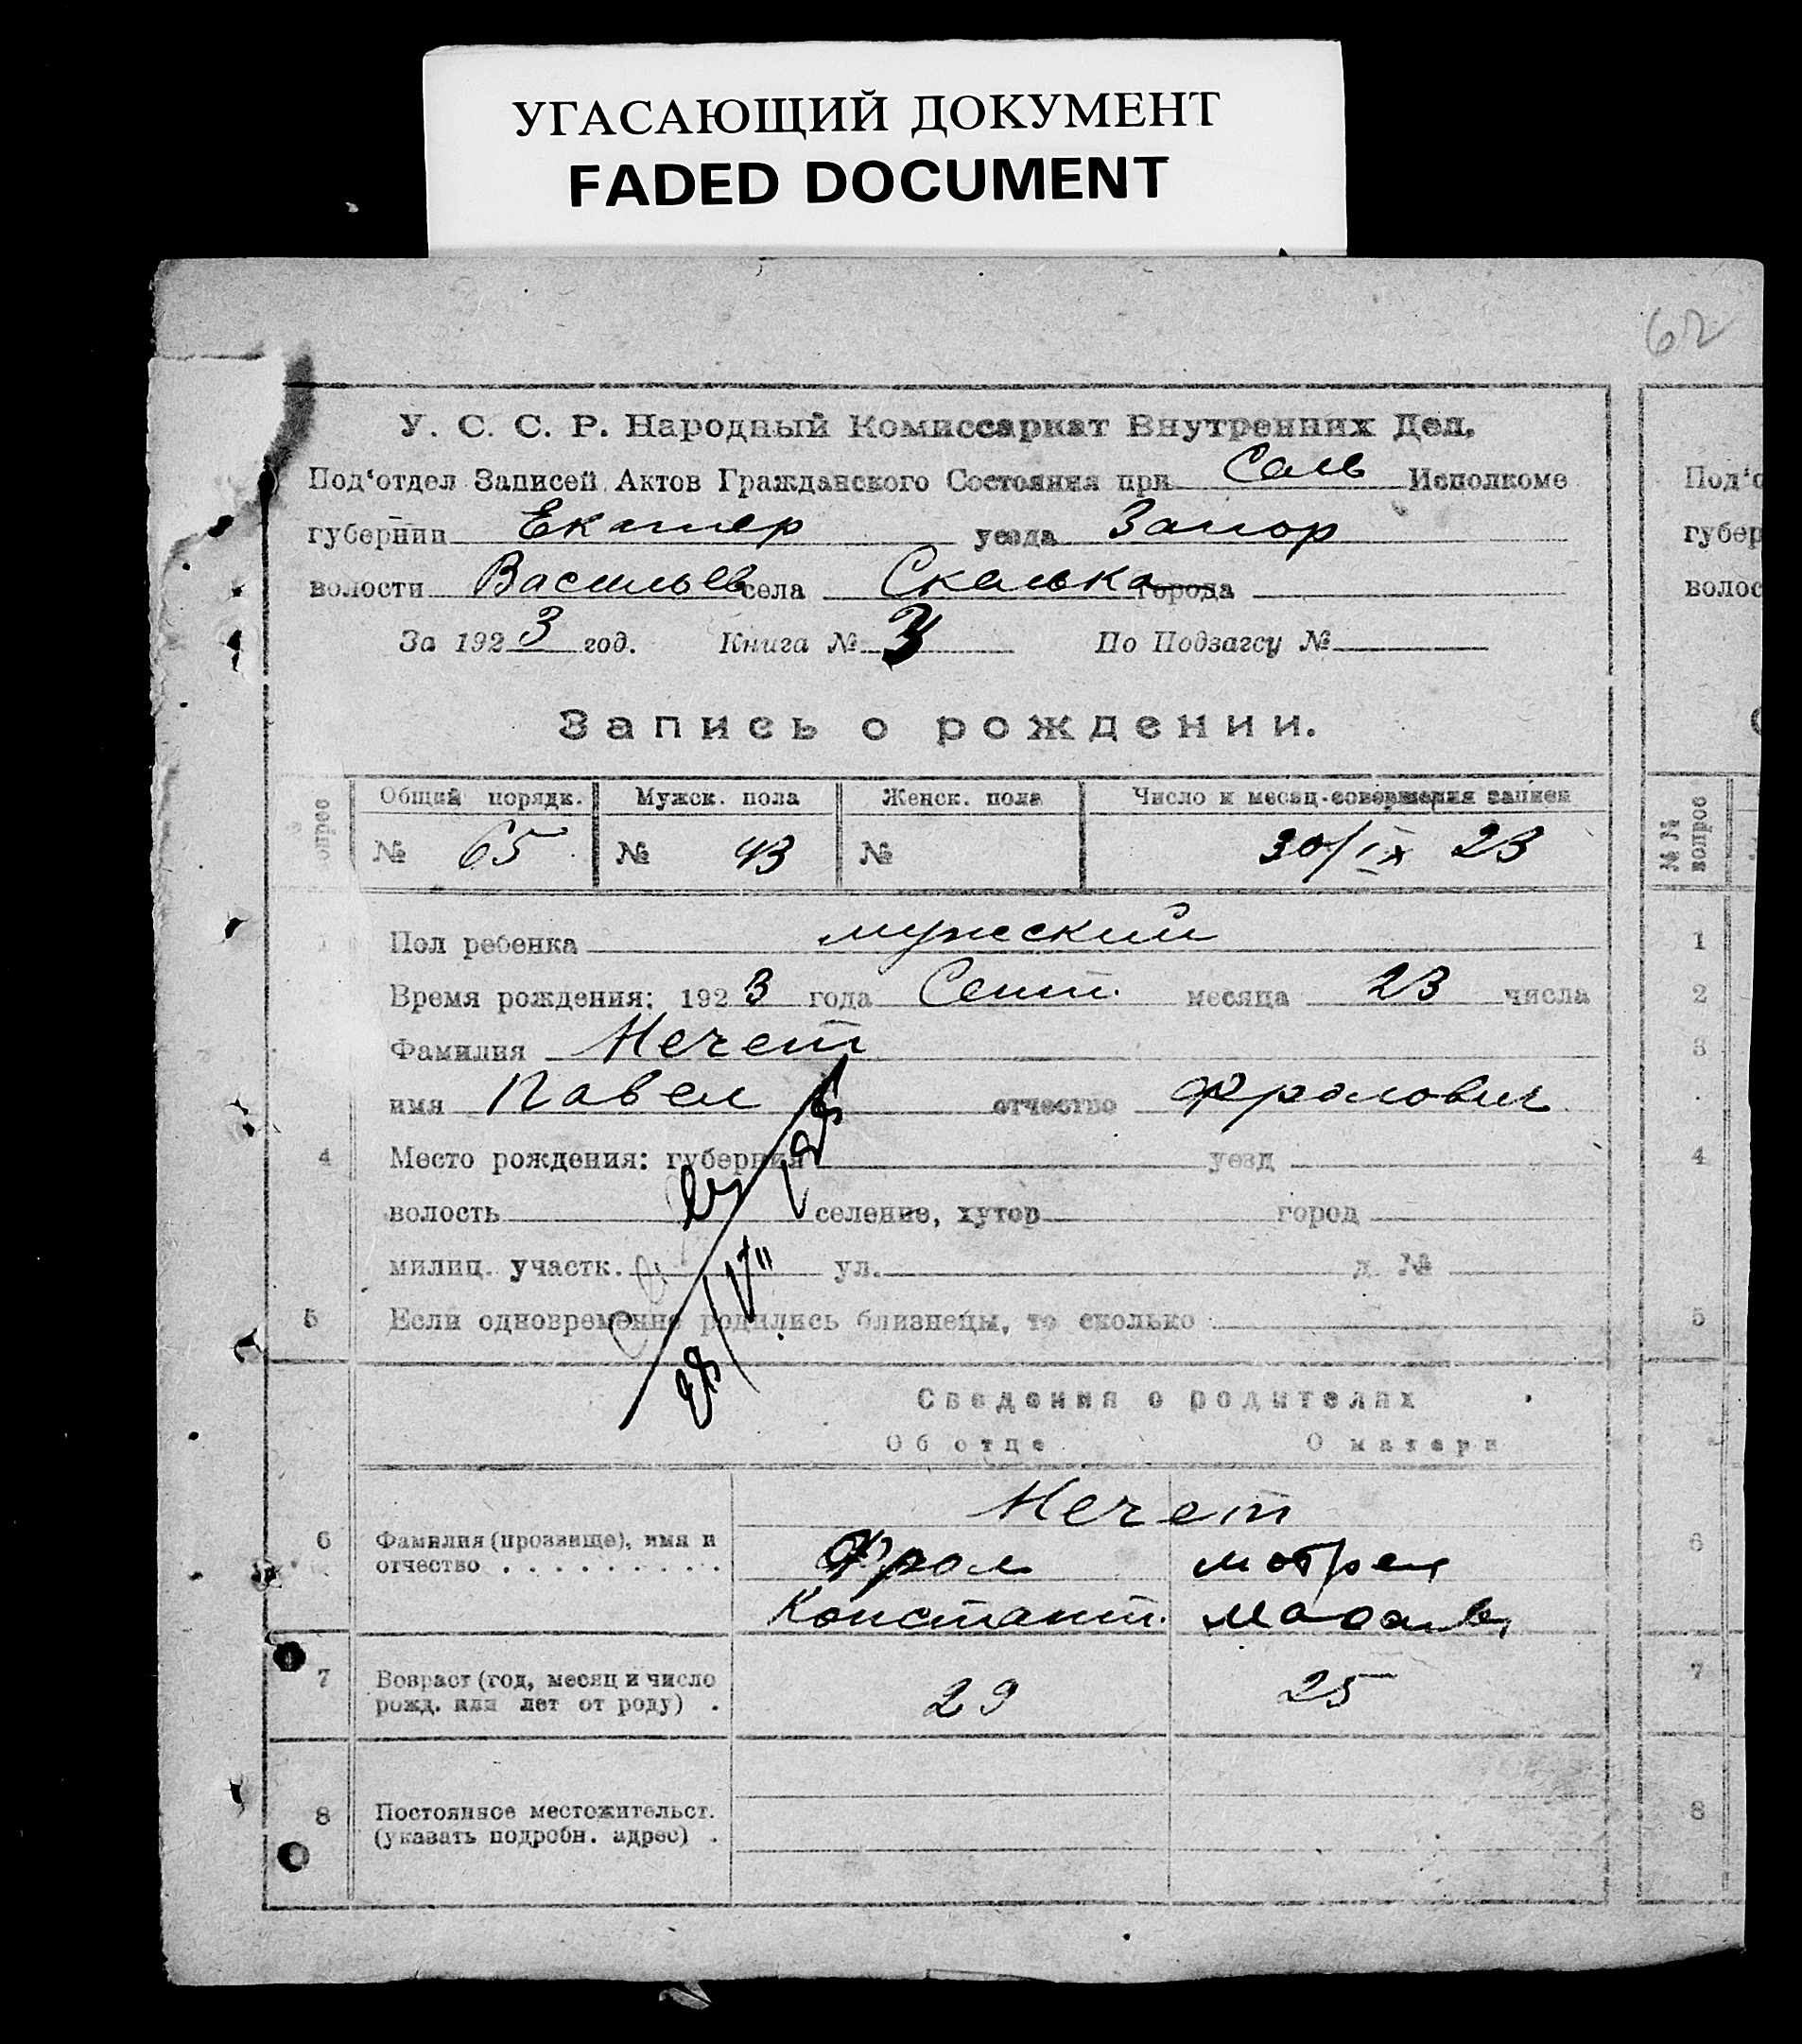 УГАСАЮЩИЙ ДОКУМЕНТ
FADED DOCUMENT
62
У. С. С. Р. Народный Комиссариат Внутренних Дел.
Под‘отдел Записей Актов Гражданского Состояния при Сель Исполкоме
губернии Екатер уезда Запор
волости Васильев села Скелька города
За 1923 год. Книга № 3 По Подзагсу №
Запись о рождении.
Общий порядк. Мужск. пола Женск. пола Число и месяц совершения записи
№ 65 № 43 № 30/IX 23
Пол ребенка мужский
Время рождения: 1923 года Сент. месяца 23 числа
Фамилия Нечет
имя Павел отчество Фролович
4 Место рождения: губерния уезд
волость селение, хутор город
милиц. участк. ул. д. №
5 Если одновременно родились близнецы, то сколько
Сведения о родителях
Об отце О матери
Нечет
6 Фамилия (прозвище), имя и отчество Фрол Мотрея
Констант.
7 Возраст (год, месяц и число рожд. или лет от роду) 29 25
8 Постоянное местожительст. (указать подробн. адрес)
Под‘о
губер
волос
№№ вопрос
1
2
3
4
5
6
7
8